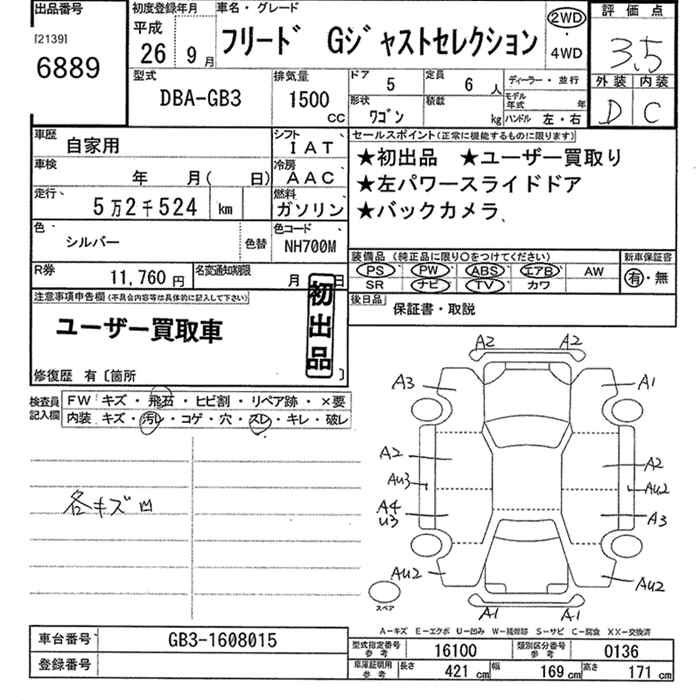 出品番号 初度登録年月 車名・グレード 評価点
[2139] 6889 平成26年9月 フリード Gジャストセレクション 2WD・4WD 3.5
外装 内装
D C
型式 排気量 ドア 定員 ディーラー・並行
DBA-GB3 1500cc 5 6人
形状 積載 モデル年式 年
ワゴン kg ハンドル 左・右
車歴 自家用 シフト IAT
セールスポイント(正常に機能するものに限ります)
★初出品 ★ユーザー買取り
★左パワースライドドア
★バックカメラ
車検 年 月( 日) 冷房 AAC
走行 5万2千524 km 燃料 ガソリン
色 シルバー 色替 色コード NH700M
装備品(純正品に限り〇をつけてください) 新車保証書
PS PW ABS エアB AW 有・無
SR ナビ TV カワ
R券 11,760円 名変通知期限 月 日
後日品 保証書・取説
注意事項申告欄(不具合内容等は具体的に記入して下さい)
初出品
ユーザー買取車
修復歴 有〔箇所 〕
検査員記入欄
FW キズ・飛石・ヒビ割・リペア跡・×要
内装 キズ・汚レ・コゲ・穴・スレ・キレ・破レ
各キズ凹
A2 A2
A3 A1
A2 A2
AU3 AU2
A4 A3
U3
AU2 AU2
A1 A1
スペア
A-キズ E-エクボ U-凹み W-補修跡 S-サビ C-腐食 XX-交換済
車台番号 GB3-1608015
登録番号
型式指定番号参考 16100 類別区分番号参考 0136
車庫証明用参考 長さ 421cm 幅 169cm 高さ 171cm